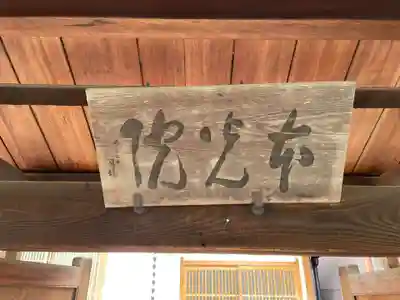 本光院